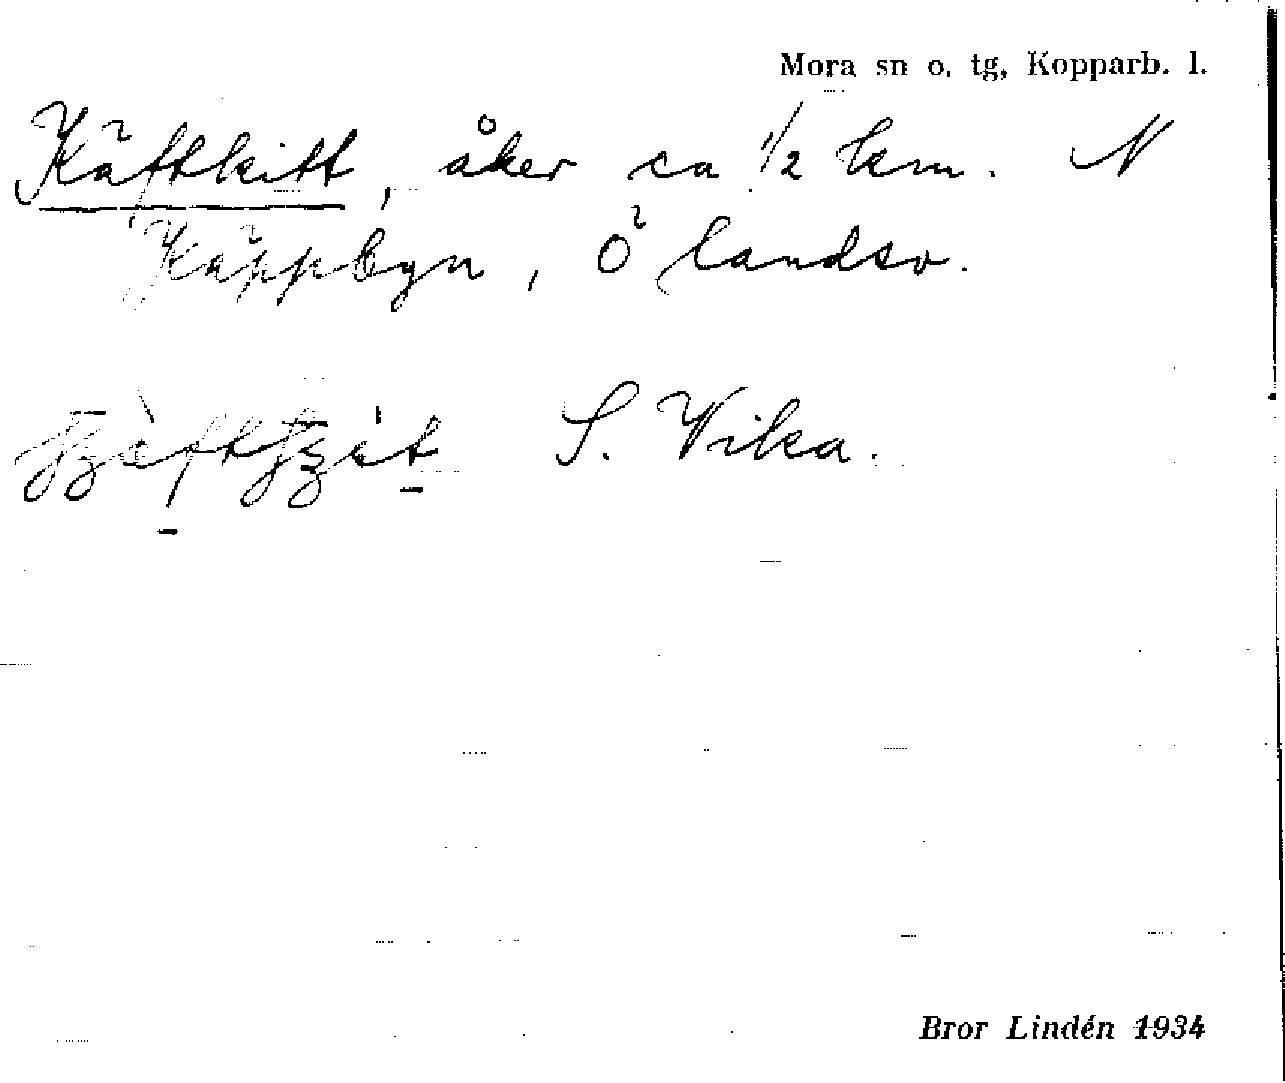 Mora sn o. tg, Kopparb. l.
Käftkitt, åker ca 1/2 km. N
Käppbyn, Ö landsv.
S. Vika.
Bror Lindén 1934